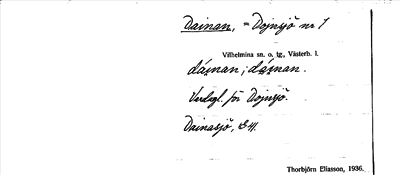 Dainan, = Dojnsjö nr 1
Vilhelmina sn. o. tg., Västerb. l.
dáinan; dáinan.
för Dojnsjö.
Dainasjö,
Thorbjörn Eliasson, 1936.